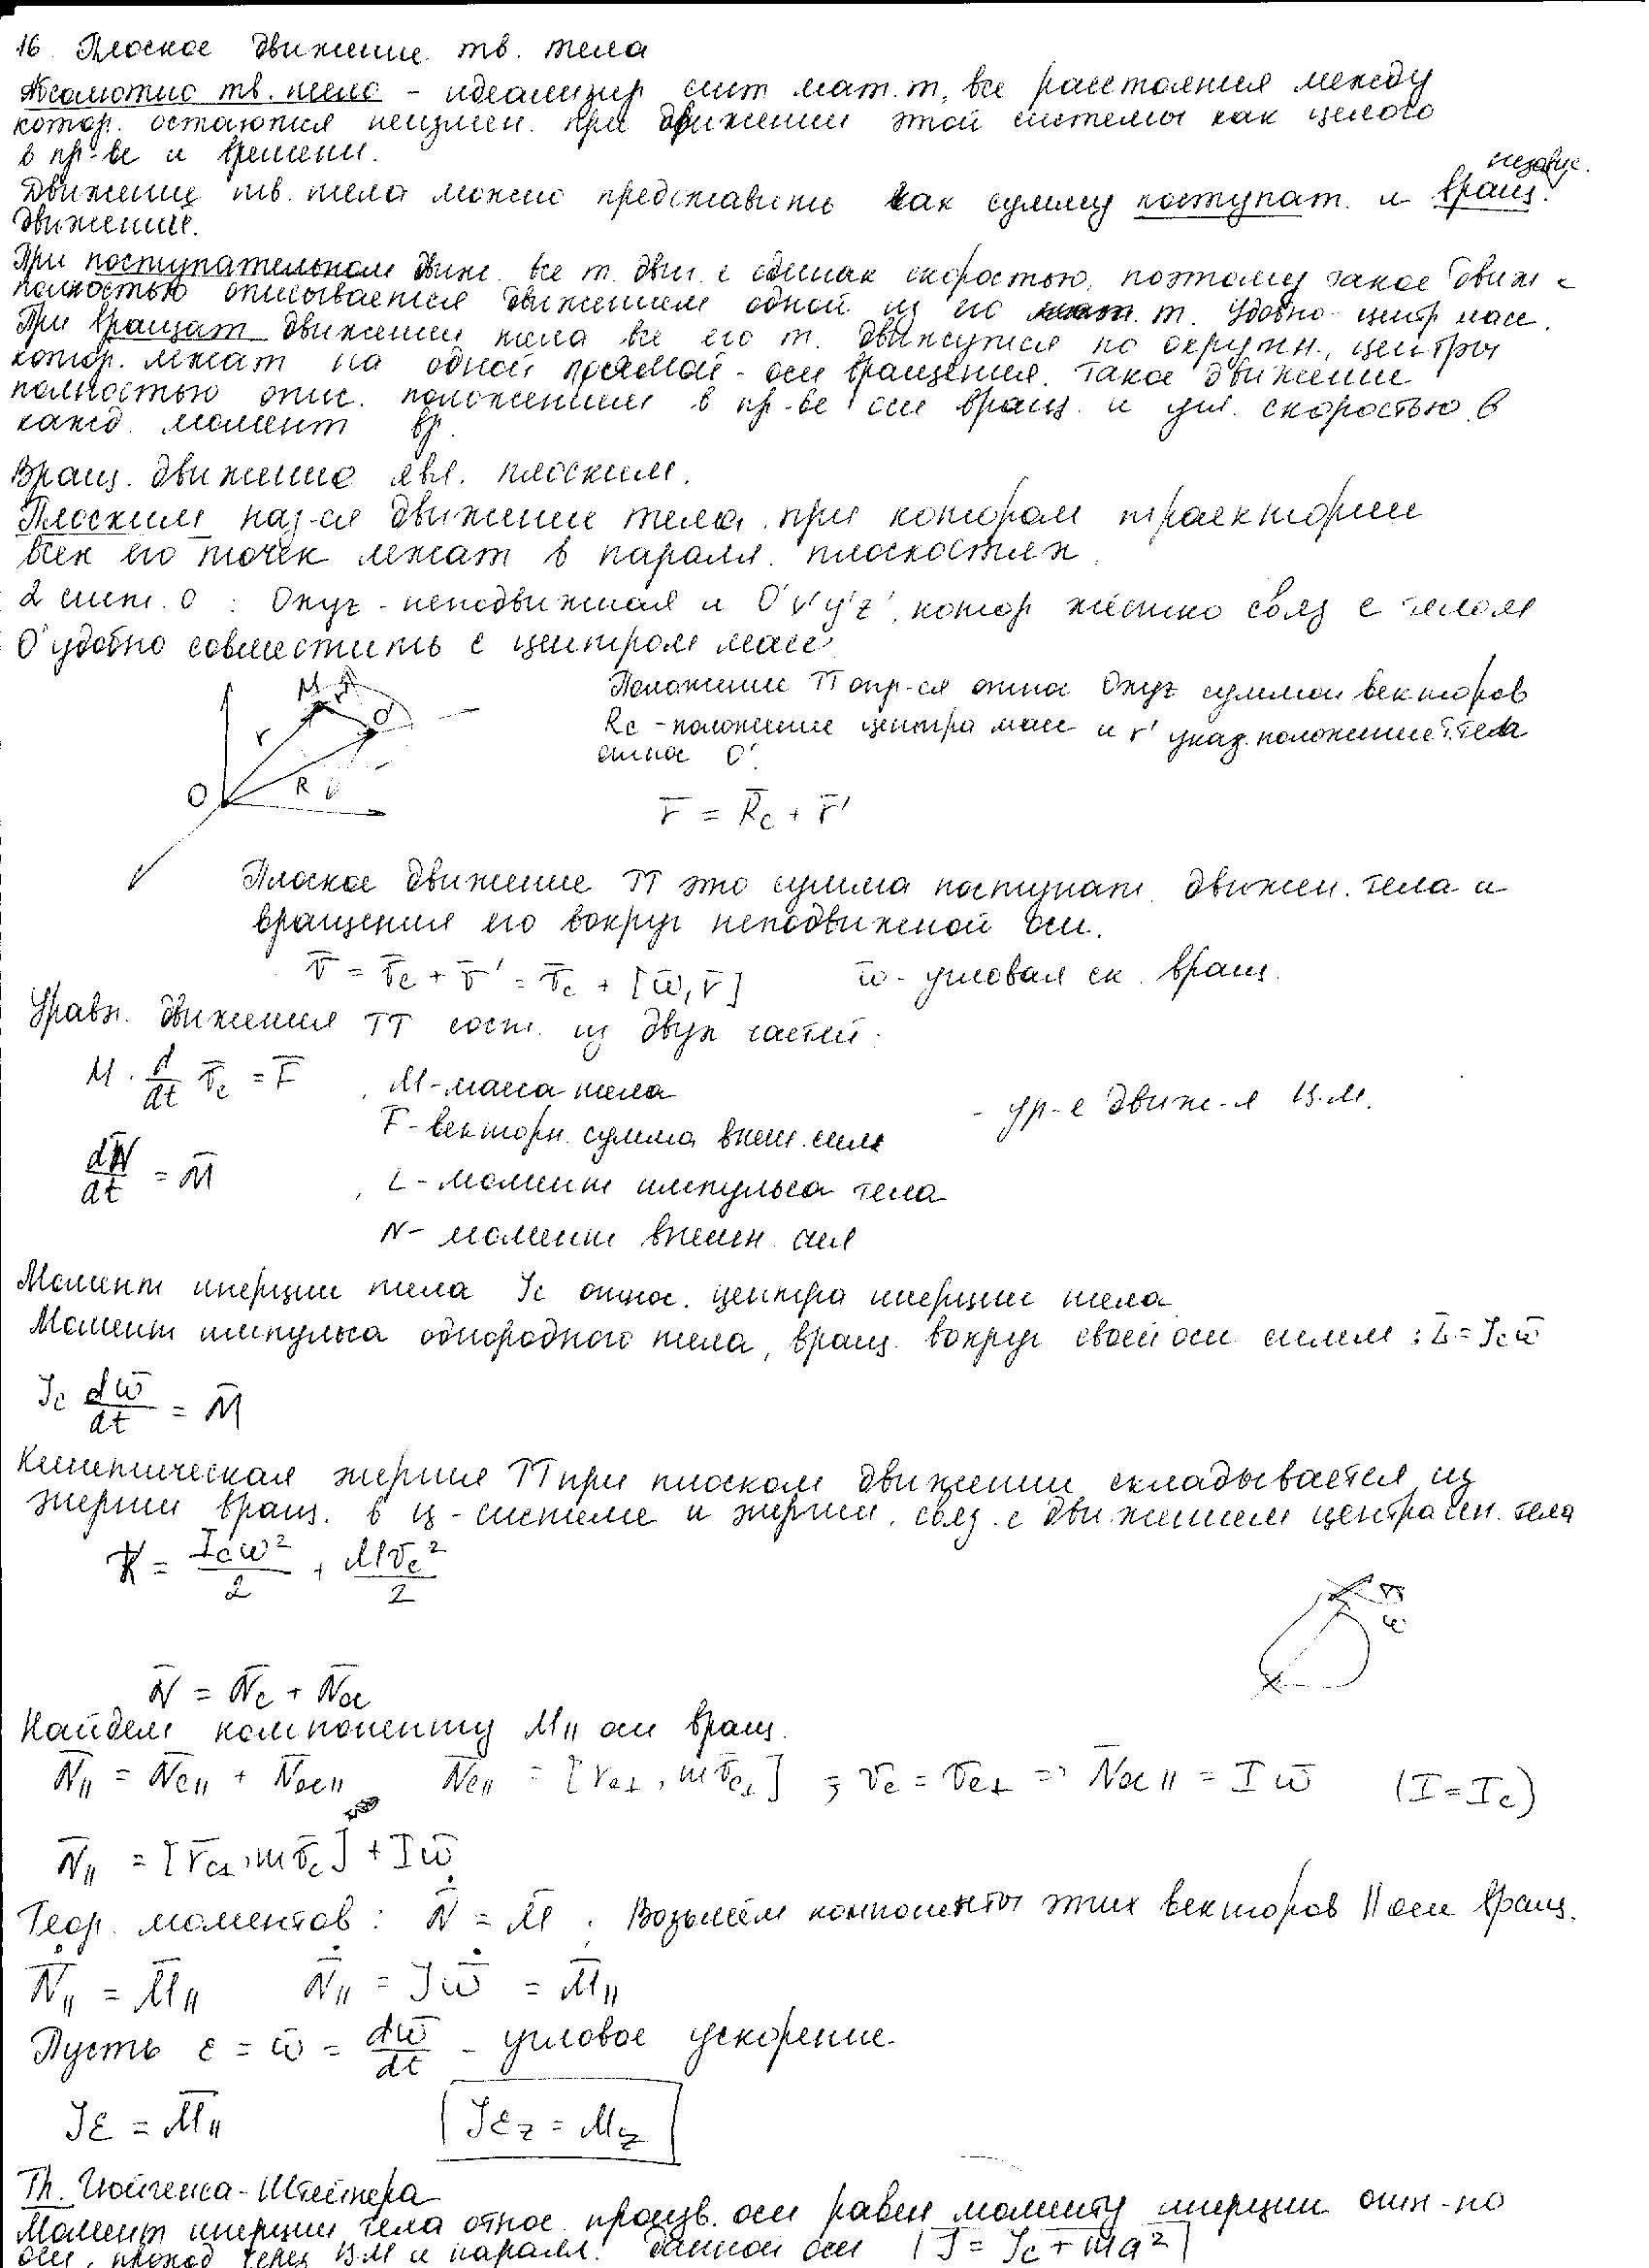 16. Плоское движение тв. тела
Абсолютно тв. тело - идеализир сист мат. т, все расстояния между
котор. остаются неизмен. при движении этой системы как целого
в пр-ве и времени.
независ.
Движение тв. тела можно представить как сумму поступат. и вращ.
движение.
При поступательном движ. все т. двиг. с одинак скоростью, поэтому такое движ-е
полностью описывается движением одной из его т. Удобно - центр масс.
При вращат движении тела все его т. движутся по окружн., центры
котор. лежат на одной прямой - оси вращения. Такое движение
полностью опис. положением в пр-ве оси вращ. и угл. скоростью в
кажд. момент вр.
Вращ. движение явл. плоским.
Плоским наз-ся движение тела, при котором траектории
всех его точек лежат в паралл. плоскостях.
2 сист. О : Oxyz - неподвижная и O'x'y'z', котор жёстко связ с телом
O' удобно совместить с центром масс
Положение ТТ опр-ся отно Oxyz суммой векторов
Rc - положение центра масс и r' указ. положение т. тела
отно O'.
M
r
O'
R
O
r̄ = R̄c + r̄'
Плоское движение ТТ это сумма поступат. движен. тела и
вращения его вокруг неподвижной оси.
v̄ = v̄c + v̄' = v̄c + [ω̄, r̄] ω̄ - угловая ск. вращ.
Уравн. движения ТТ сост. из двух частей:
M · d/dt v̄c = F̄ , M - масса тела
- ур-е движ-я ц.м.
F̄ - векторн. сумма внеш. сил
dN̄/dt = M̄ , L - момент импульса тела
N - момент внешн. сил
Момент инерции тела Jc относ. центра инерции тела
Момент импульса однородного тела, вращ. вокруг своей оси симм : L̄ = Jc ω̄
Jc dω̄/dt = M̄
Кинетическая энергия ТТ при плоском движении складывается из
энергии вращ. в ц-системе и энергии, связ. с движением центра ин. тела
K = Icω²/2 + Mvc²/2
N̄ = N̄c + N̄oc
Найдем компоненту M|| оси вращ.
N̄|| = N̄c|| + N̄oc|| N̄c|| = [r̄c⊥, m v̄c⊥] ; vc = vc⊥ => N̄oc|| = I ω̄ (I = Ic)
N̄|| = [r̄c⊥, m v̄c] + I ω̄
Теор. моментов: N̄̇ = M̄. Возьмём компоненты этих векторов || оси вращ.
N̄̇|| = M̄|| N̄̇|| = J ω̄̇ = M̄||
Пусть ε = ω̄̇ = dω̄/dt - угловое ускорение.
Jε = M̄|| Jεz = Mz
Th. Гюйгенса-Штейнера
Момент инерции тела относ. произв. оси равен моменту инерции отн-но
оси, проход через ЦМ и паралл. данной оси J = Jc + ma²